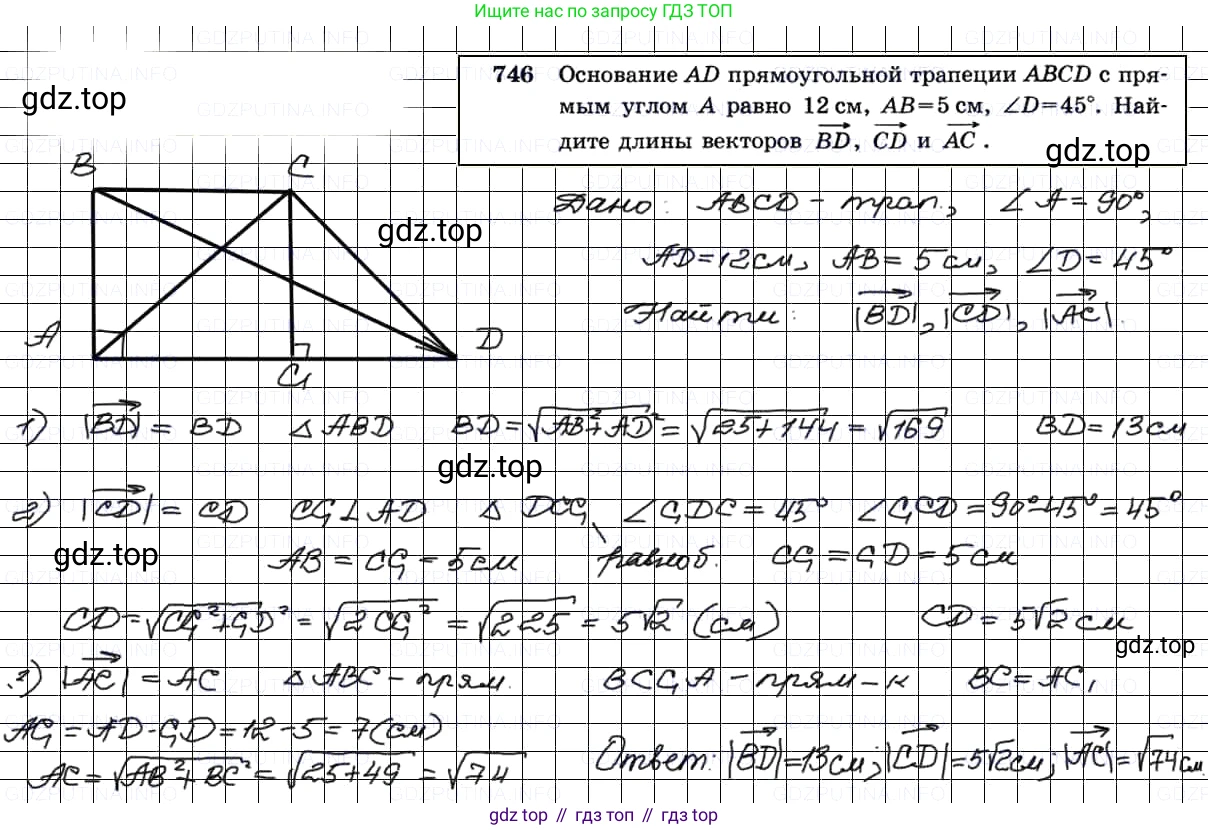 Ищите нас по запросу ГДЗ ТОП
746 Основание AD прямоугольной трапеции ABCD с пря-
мым углом A равно 12 см, AB=5 см, ∠D=45°. Най-
дите длины векторов BD, CD и AC.
gdz.top
gdz.top
B C
Дано: ABCD – трап., ∠A = 90°,
gdz.top
AD=12см, AB= 5см, ∠D= 45°
Найти: |BD|, |CD|, |AC|.
A D
C₁
1) |BD| = BD △ABD BD = √AB²+AD² = √25+144 = √169 BD=13см
gdz.top
2) |CD| = CD CC₁⊥AD △DCC₁ ∠C₁DC = 45° ∠C₁CD = 90°-45° = 45°
gdz.top
AB = CC₁ = 5см равноб. CC₁ = C₁D = 5см
CD=√CC₁²+C₁D² = √2CC₁² = √2·25 = 5√2 (см) CD = 5√2см
gdz.top
3) |AC| = AC △ABC – прям. BCC₁A – прям-к BC=AC₁
AC₁ = AD-C₁D=12-5=7(см)
AC = √AB²+BC² = √25+49 = √74
Ответ: |BD|=13см; |CD|=5√2см; |AC|=√74см.
gdz.top // гдз топ // gdz top